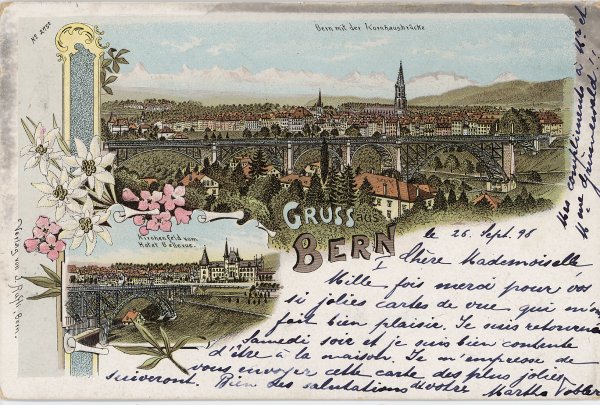 No 2750
Bern mit der Kornhausbrücke
Mes compliments à Mr et
Mme Grünenwald!!
GRUSS aus
BERN
Kirchenfeld vom
Hotel Bellevue.
Verlag von
Bern.
le 26. Sept. 98
Chère Mademoiselle
Mille fois merci pour vos
si jolies cartes de vue, qui m'ont
fait bien plaisir. Je suis retournée
Samedi soir et je suis bien contente
d'être à la maison. Je m'empresse de
vous envoyer cette carte des plus jolies
suiveront. Bien des salutations de votre Martha Tobler